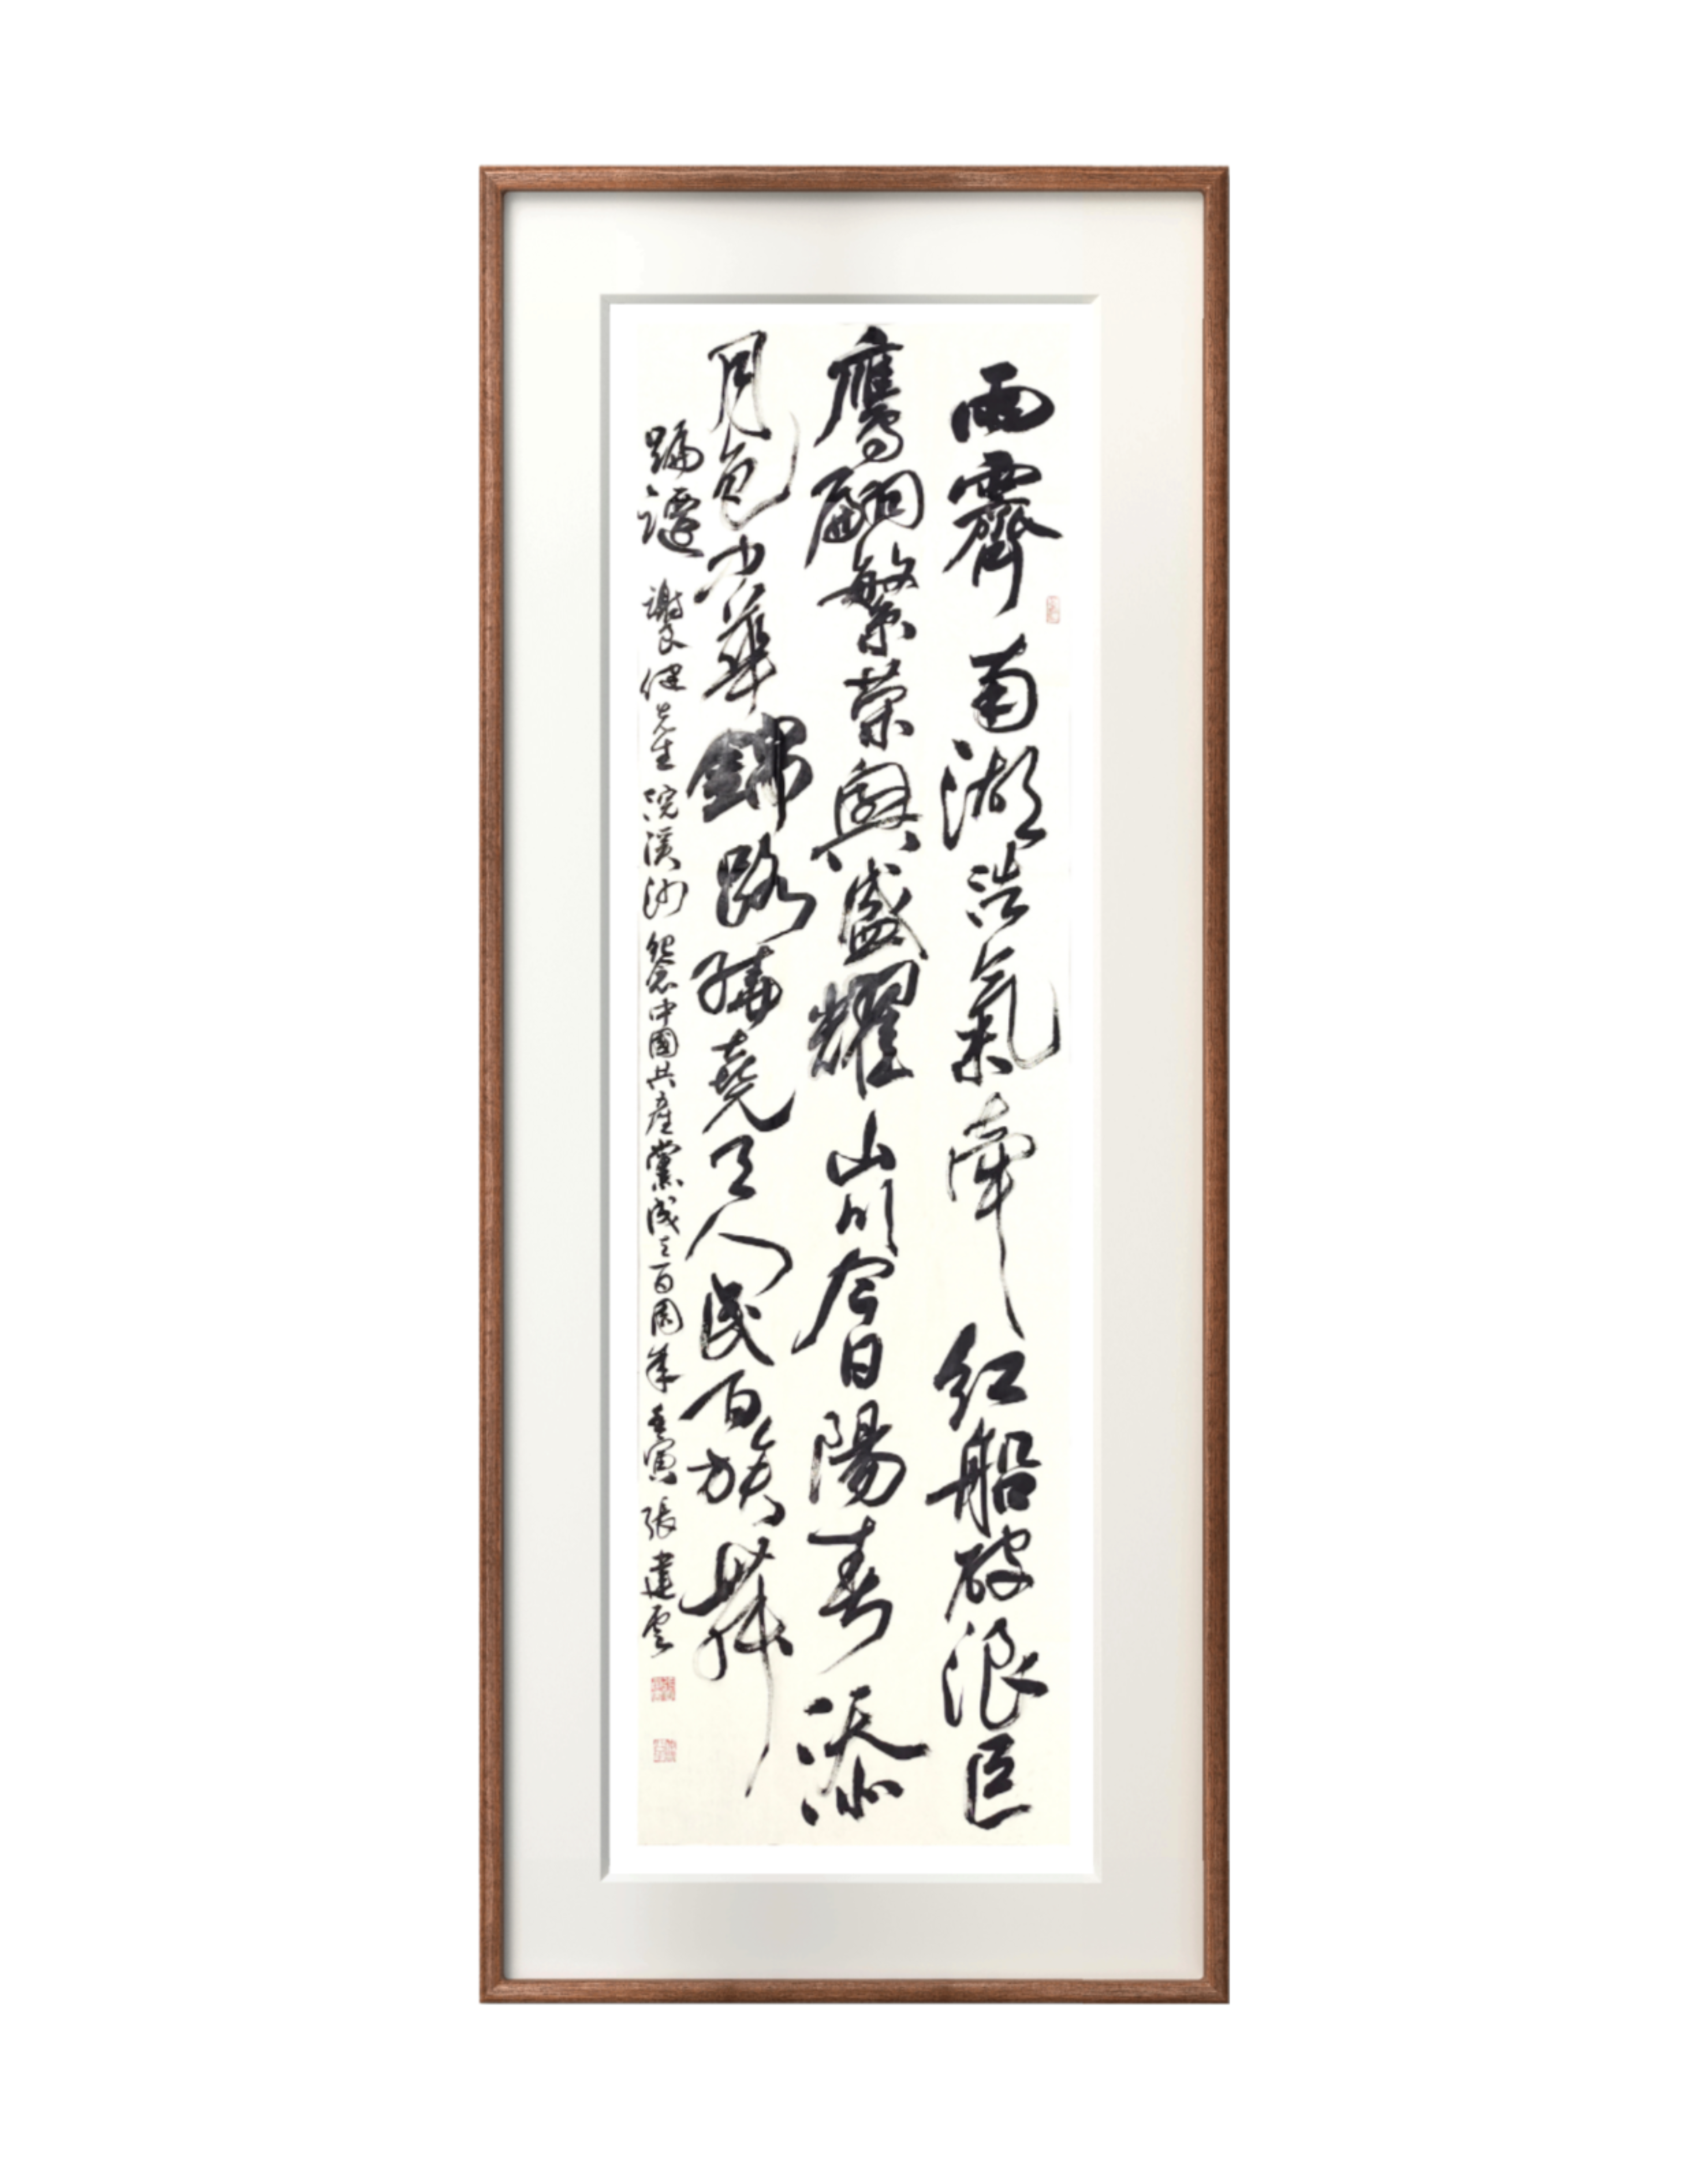 雨霽南湖浩氣牽紅船破浪巨
鷹翩繁榮興盛耀山川今日陽春添
月色少華錦路繡堯天人民百族舞
蹁躚 謝健先生浣溪沙紀念中國共產黨成立百周年壬寅張建雲